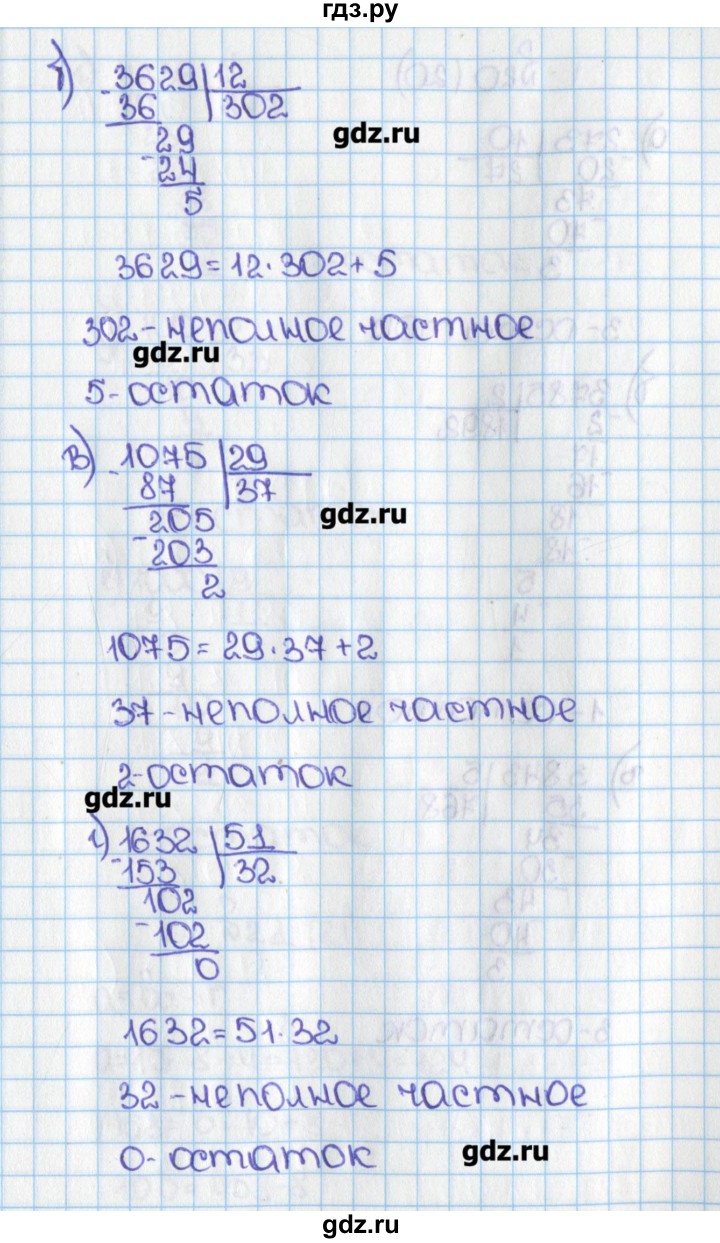 гдз.ру
б) 3629 12
- 36 302
gdz.ru
29
- 24
5
3629 = 12 · 302 + 5
302 - неполное частное
gdz.ru
5 - остаток
в) 1075 29
- 87 37
gdz.ru
205
- 203
2
1075 = 29 · 37 + 2
37 - неполное частное
2 - остаток
gdz.ru
г) 1632 51
- 153 32
102
- 102
0
1632 = 51 · 32
32 - неполное частное
0 - остаток
gdz.ru
gdz.ru